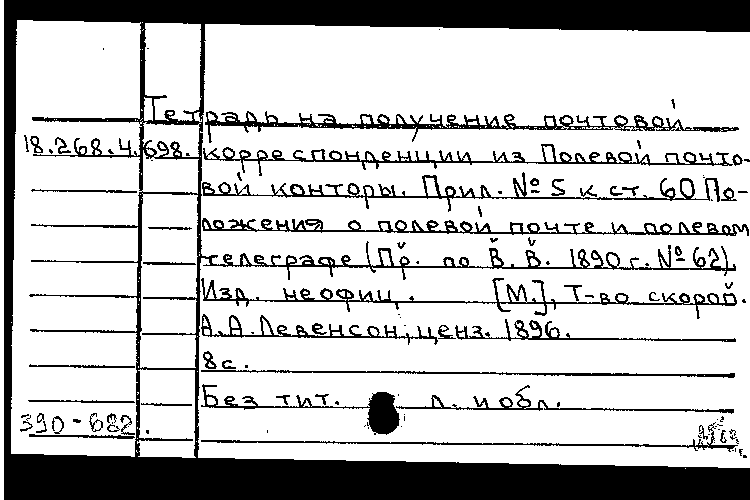 Тетрадь на получение почтовой
18.268.4.698. корреспонденции из Полевой почто-
вой конторы. Прил. № 5 к ст. 60 По-
ложения о полевой почте и полевом
телеграфе (Пр. по В. В. 1890 г. № 62).
Изд. неофиц. [М.], Т-во скороп.
А.А. Левенсон, ценз. 1896.
8с.
Без тит. л. и обл.
390-682.